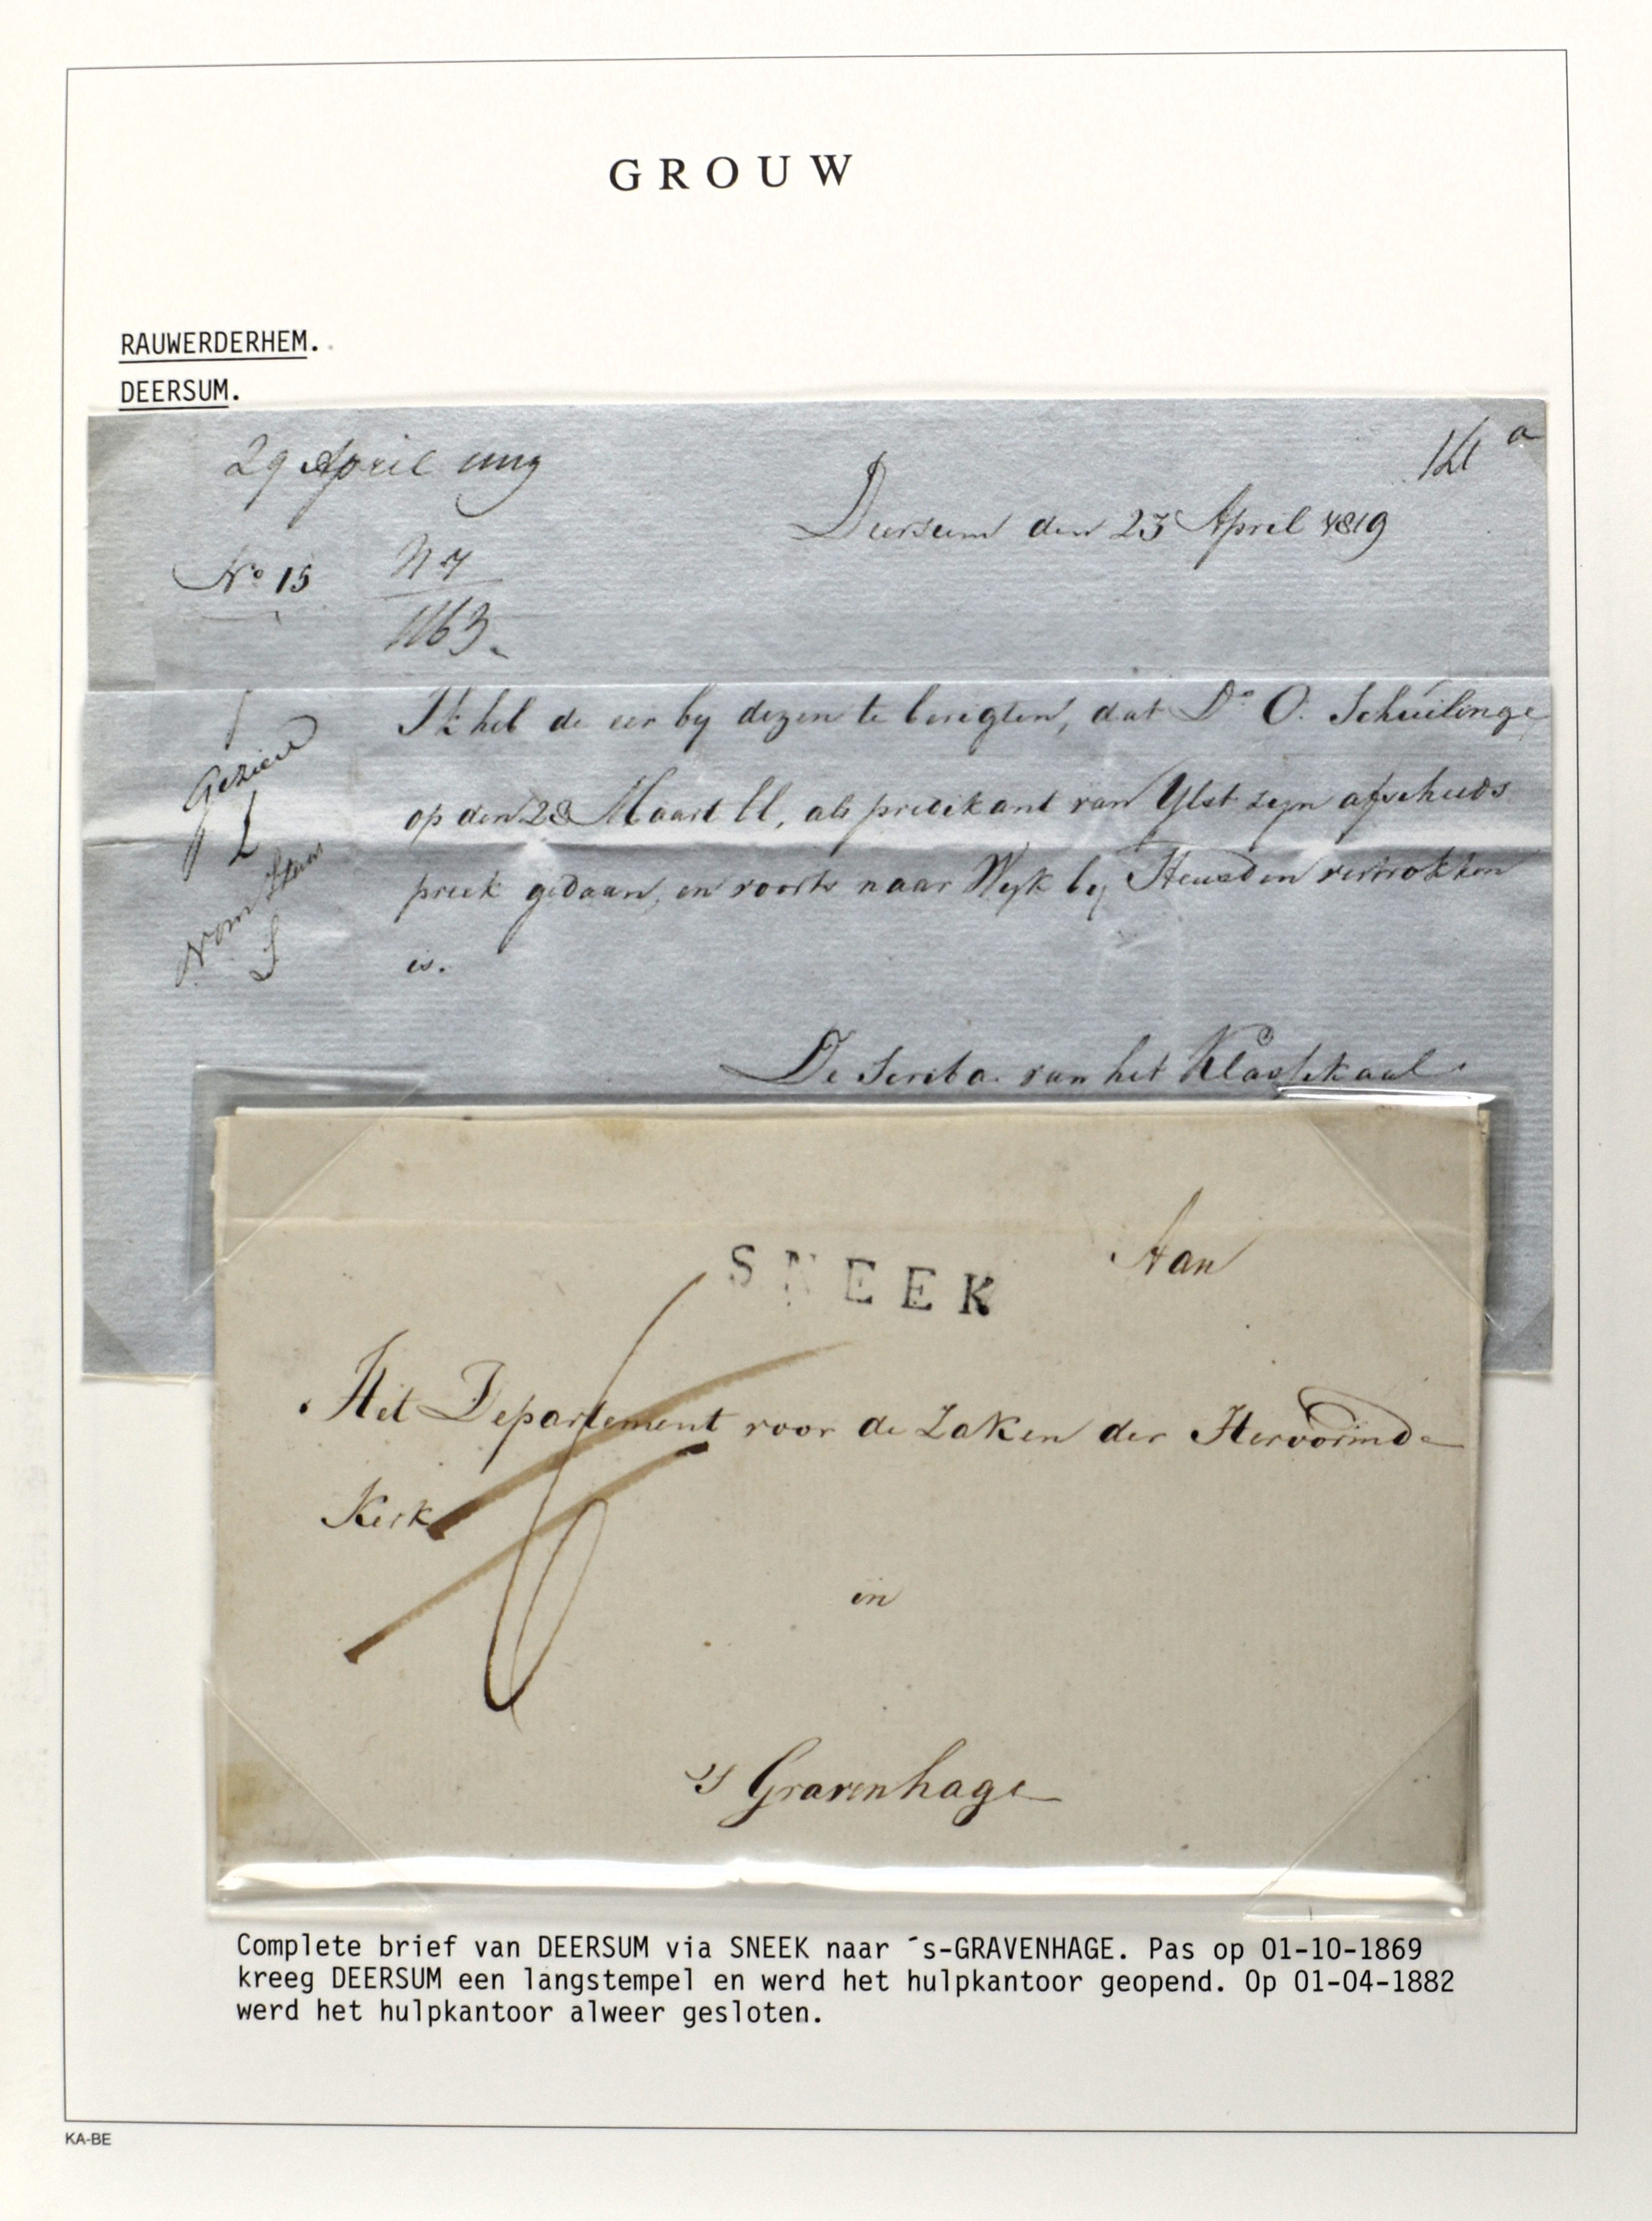 GROUW
RAUWERDERHEM.
DEERSUM.
29 April
14 a
Deersum den 23 April 1819
No 15
N 7
1163.
Ik heb de eer by dezen te berigten, dat Ds O. Schuilinge
op den 28 Maart ll, als predikant van Ylst zyn afscheids
preek gedaan, en voorts naar Wyk by Heusden vertrokken
is.
Gezien
De Scriba van het Klassikaal
SNEEK
Aan
Het Departement voor de Zaken der Hervormde
Kerk
in
's Gravenhage
Complete brief van DEERSUM via SNEEK naar ´s-GRAVENHAGE. Pas op 01-10-1869
kreeg DEERSUM een langstempel en werd het hulpkantoor geopend. Op 01-04-1882
werd het hulpkantoor alweer gesloten.
KA-BE